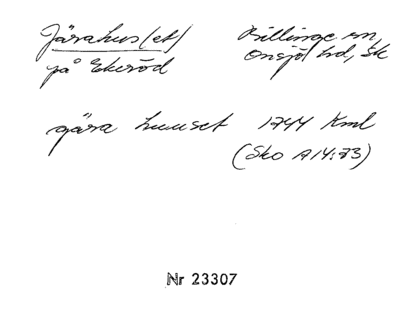 Järahus(et)
på Ekeröd
Billinge sn,
Onsjö hd, Sk
gära huuset 1744 Kml
(Sko A14:73)
Nr 23307